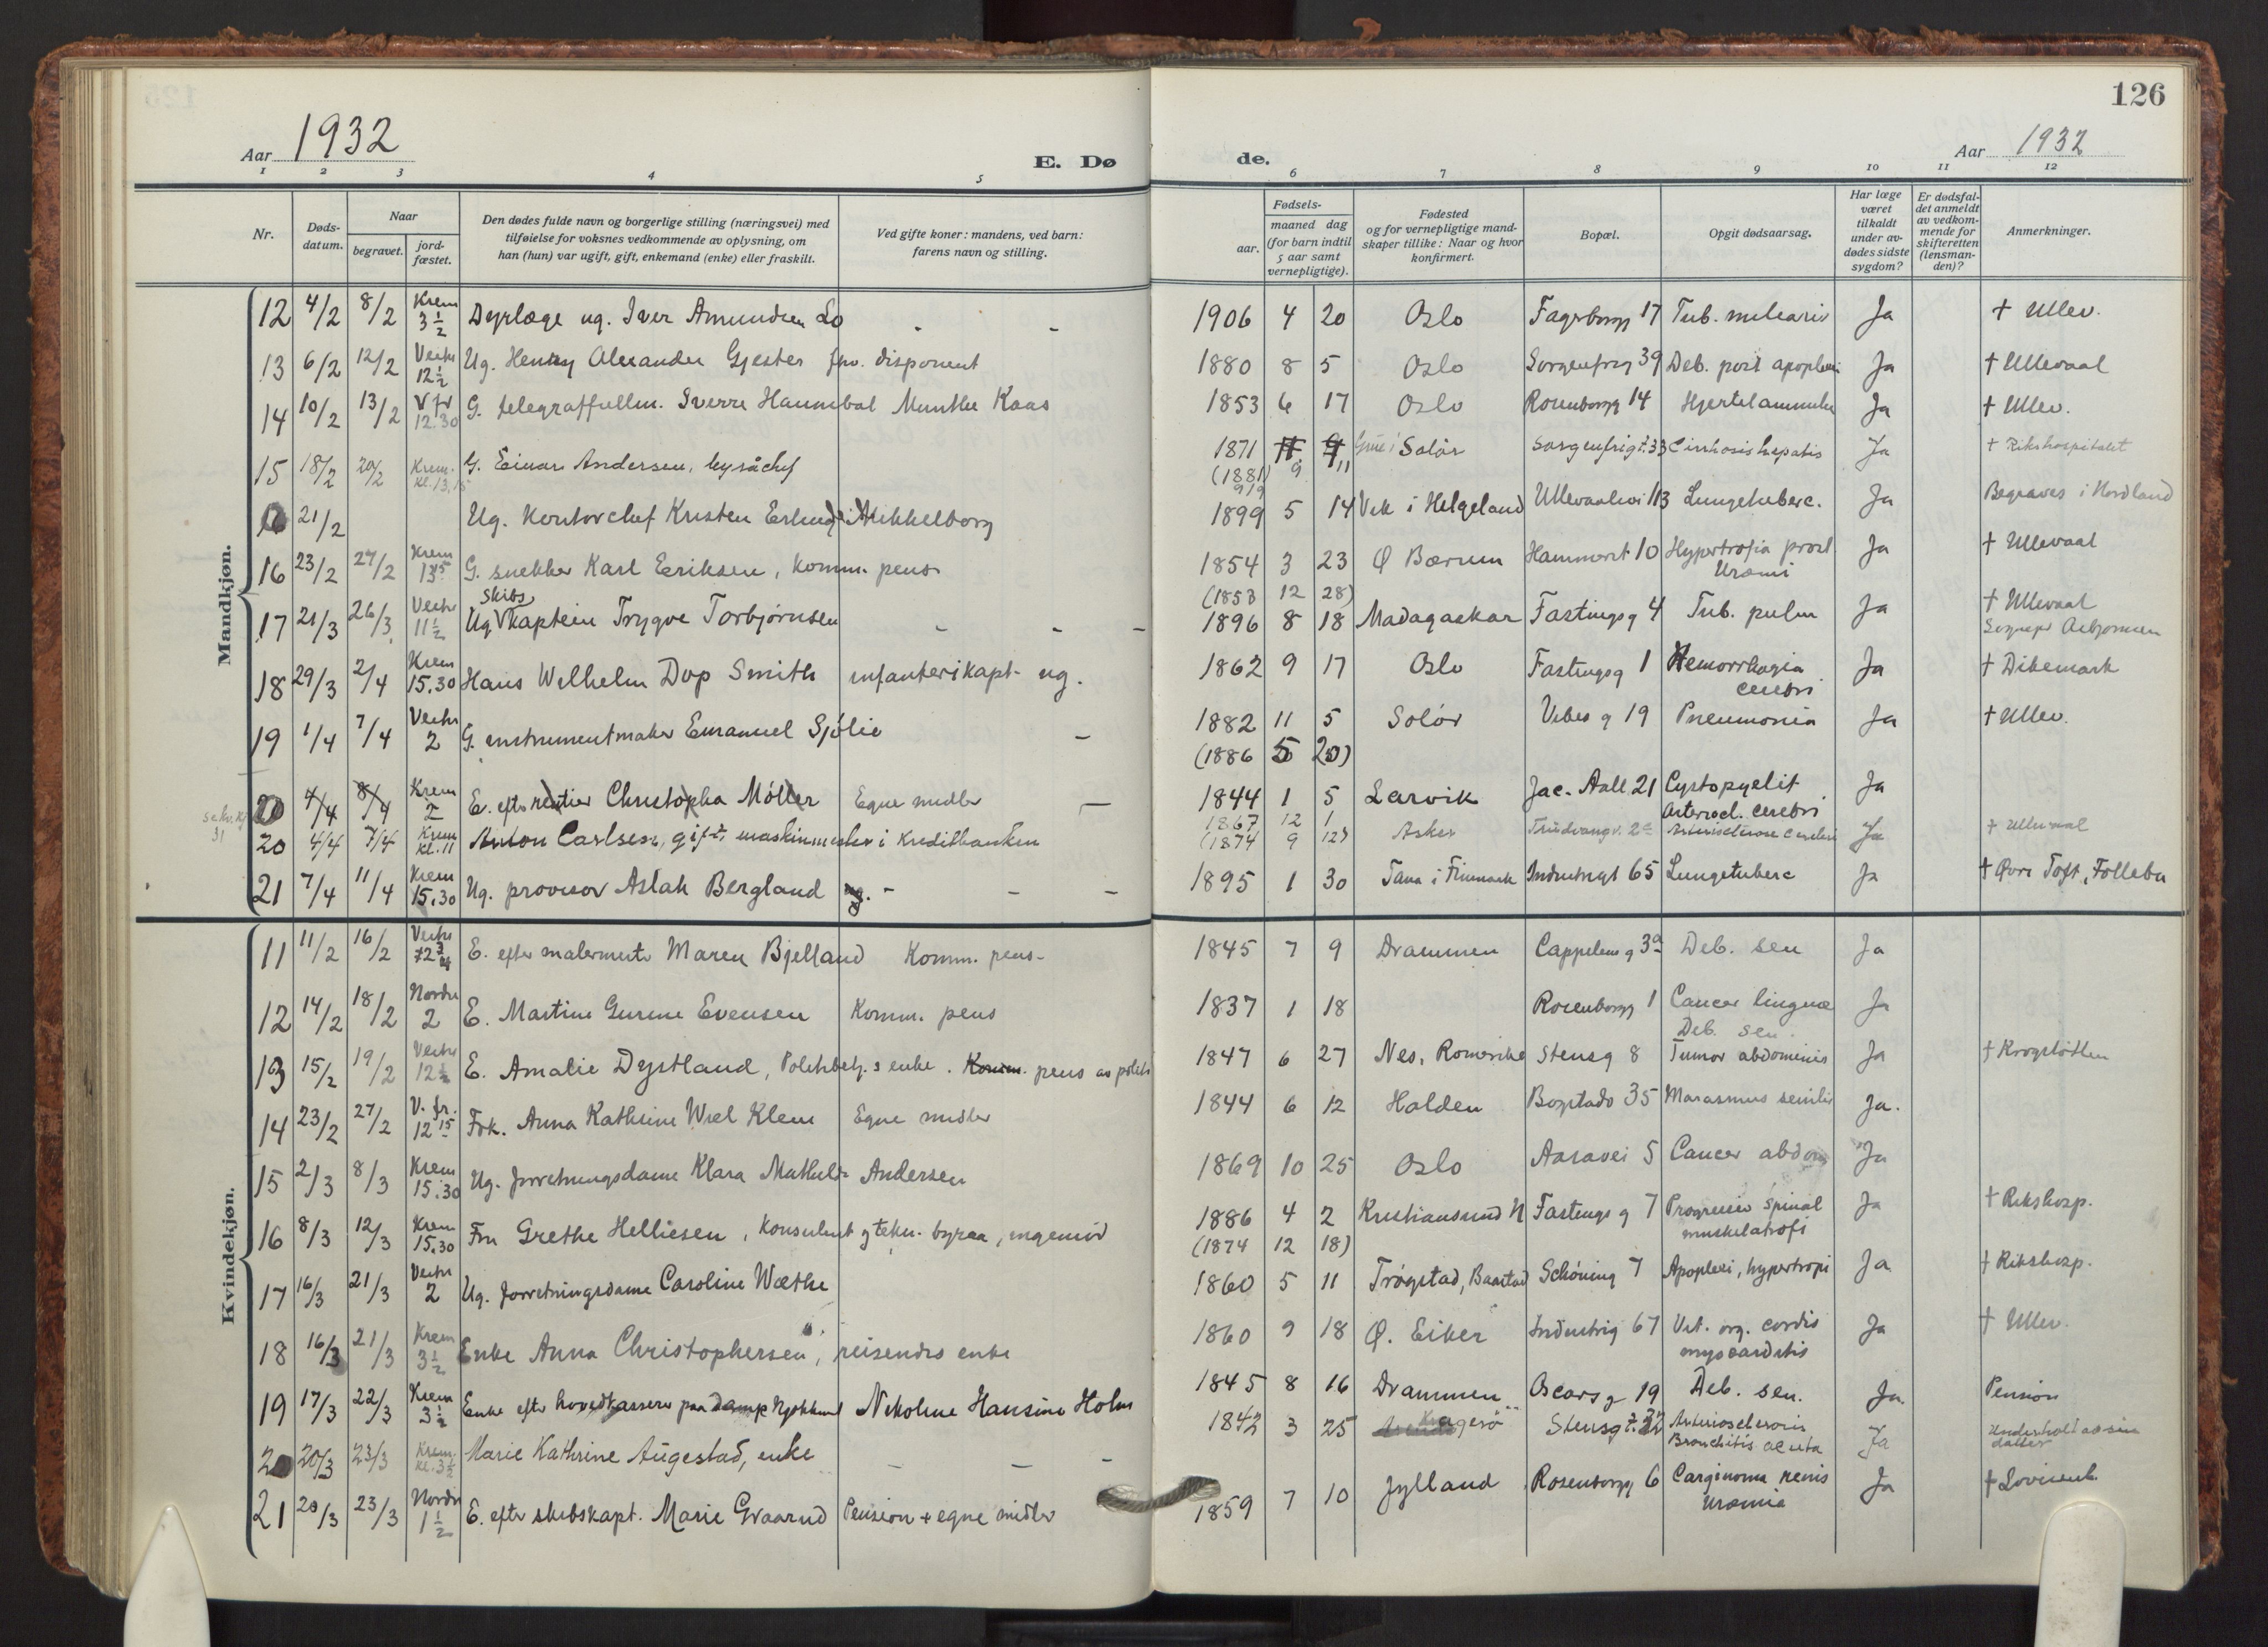 126
Aar 1932
E. Dø
de.
Aar 1932
1 2 3 4 5 6 7 8 9 10 11 12
Nr.
Døds-
datum.
Naar
begravet.
jord-
fæstet.
Den dødes fulde navn og borgerlige stilling (næringsvei) med
tilføielse for voksnes vedkommende av oplysning, om
han (hun) var ugift, gift, enkemand (enke) eller fraskilt.
Ved gifte koner: mandens, ved barn:
farens navn og stilling.
Fødsels-
aar.
maaned dag
(for barn indtil
5 aar samt
vernepligtige).
Fødested
og for vernepligtige mand-
skaper tillike: Naar og hvor
konfirmert.
Bopæl.
Opgit dødsaarsag.
Har læge
været
tilkaldt
under av-
dødes sidste
sygdom?
Er dødsfal-
det anmeldt
av vedkom-
mende for
skifteretten
(lensman-
den)?
Anmerkninger.
Mandkjøn.
12 4/2 8/2 Krem 3 1/2 Dyrlæge ug. Iver Amundsen Lo - - 1906 4 20 Oslo Fagerborgg 17 Tub. miliaris Ja † Ullev.
13 6/2 12/2 Vestre 12 1/2 Ug. Henry Alexander Gjester fhv. disponent 1880 8 5 Oslo Sorgenfrig 39 Deb. post apoplexi Ja † Ullevaal
14 10/2 13/2 V fr 12.30 G. telegraffullm. Sverre Hannibal Munthe Kaas 1853 6 17 Oslo Rosenborgg 14 Hjertelammelse Ja † Ullev.
15 18/2 20/2 Krem. kl. 13,15 G. Einar Andersen, byråchef 1871 Grue i Solør Sorgenfrigt. 33 Cirrhosis hepatis Ja † Rikshospitalet
(1881 9 11
9/9
21/2 Ug. Kontorchef Kristen Erling Mikkelborg 1899 5 14 Vik i Helgeland Ullevaalsvei 113 Lungetuberc. Ja Begraves i Nordland
16 23/2 27/2 Krem 13 15 G. snekker Karl Eriksen, komm. pens. 1854 3 23 Ø Bærum Hammerst 10 Hypertrofia prost. Uræmi Ja † Ullevaal
(1853 12 28)
17 21/3 26/3 Vestre 11 1/2 Ug. Skibs kaptein Trygve Torbjørnsen - - - 1896 8 18 Madagaskar Fastingsg 4 Tub. pulm Ja † Ullevaal
Sogнepr Asbjørnsen
18 29/3 2/4 Krem 15.30 Hans Wilhelm Dop Smith infanterikapt. ug. 1862 9 17 Oslo Fastingsg 1 Hemorrhagia cerebri Ja † Dikemark
19 1/4 7/4 Vestre 2 G. instrumentmaker Emanuel Sjølie - 1882 11 5 Solør Vibes g 19 Pneumonia Ja † Ullev.
(1886 5 20)
20 4/4 8/4 Krem 2 E. efter rentier Christopha Möller Egne midler - 1844 1 5 Larvik Jac. Aall 21 Cystopyelit Arteroscl. cerebri Ja
31
20 4/4 7/4 Krem kl. 11 Anton Carlsen, gift, maskinmester i Kreditbanken 1867 12 1 Asker Trudvangv. 2 Arteriosclerose cerebri Ja † Ullevaal
(1874 9 12)
21 7/4 11/4 Krem 15.30 Ug. provisor Aslak Bergland ug. - - - 1895 1 30 Tana i Finmark Industrigt 65 Lungetuberc Ja † Øvre Toft, Follebu
Kvindekjøn.
11 11/2 16/2 Vestre 12 3/4 E. efter malermester Maren Bjelland Komm. pens. 1845 7 9 Drammen Cappelens g 3a Deb. sen Ja
12 14/2 18/2 Nordre 2 E. Martine Gurine Evensen Komm. pens 1837 1 18 Rosenborgg 1 Cancer linguæ Deb. sen. Ja
13 15/2 19/2 Vestre 12 1/2 E. Amalie Dystland, Politibetj.s enke. Komm. pens av politi 1847 6 27 Nes, Romerike Stensg 8 Tumor abdominis Ja † Krogstøtten
14 23/2 27/2 V. fr. 12 15 Frk. Anna Kathrine Wiel Klem Egne midler 1844 6 12 Halden Bogstadv 35 Marasmus senilis Ja.
15 2/3 8/3 Krem 15.30 Ug. forretningsdame Klara Mathilde Andersen 1869 10 25 Oslo Aasavei 5 Cancer abdom Ja
16 8/3 12/3 Krem 15.30 Fru Grethe Helliesen, Konsulent g tekn. byraa, ingeniør 1886 4 2 Kristiansund N Fastings g 7 Progressiv spinal muskelatrofi Ja † Rikshosp.
(1874 12 18)
17 16/3 21/3 Vestre 2 Ug. forretningsdame Caroline Wæthe 1860 5 11 Trøgstad, Baastad Schöning 7 Apoplexi, hypertropi Ja † Rikshosp.
18 16/3 21/3 Krem 3 1/2 Enke Anna Christophersen, reisendes enke 1860 9 18 Ø. Eiker Industrig 67 Vit. org. cordis myocarditis Ja † Ullev.
19 17/3 22/3 Krem 3 1/2 Enke efter hovedkasserer paa Dampkjøkkenet Nikoline Hansine Holm 1845 8 16 Drammen Oscars g 19 Deb. sen. Ja Pension
20 20/3 23/3 Krem. kl. 3 1/2 Marie Kathrine Augestad, enke - - - 1842 3 25 Kragerö Stensgt. 32 Arteriosclerosis Bronchitis acuta Ja Underholdt av sin datter
21 20/3 23/3 Nordre 1 1/2 E. efter skibskapt. Marie Graarud Pension + egne midler 1859 7 10 Jylland Rosenborgg 6 Carginoma renis Uræmie Ja † Lovisenb.